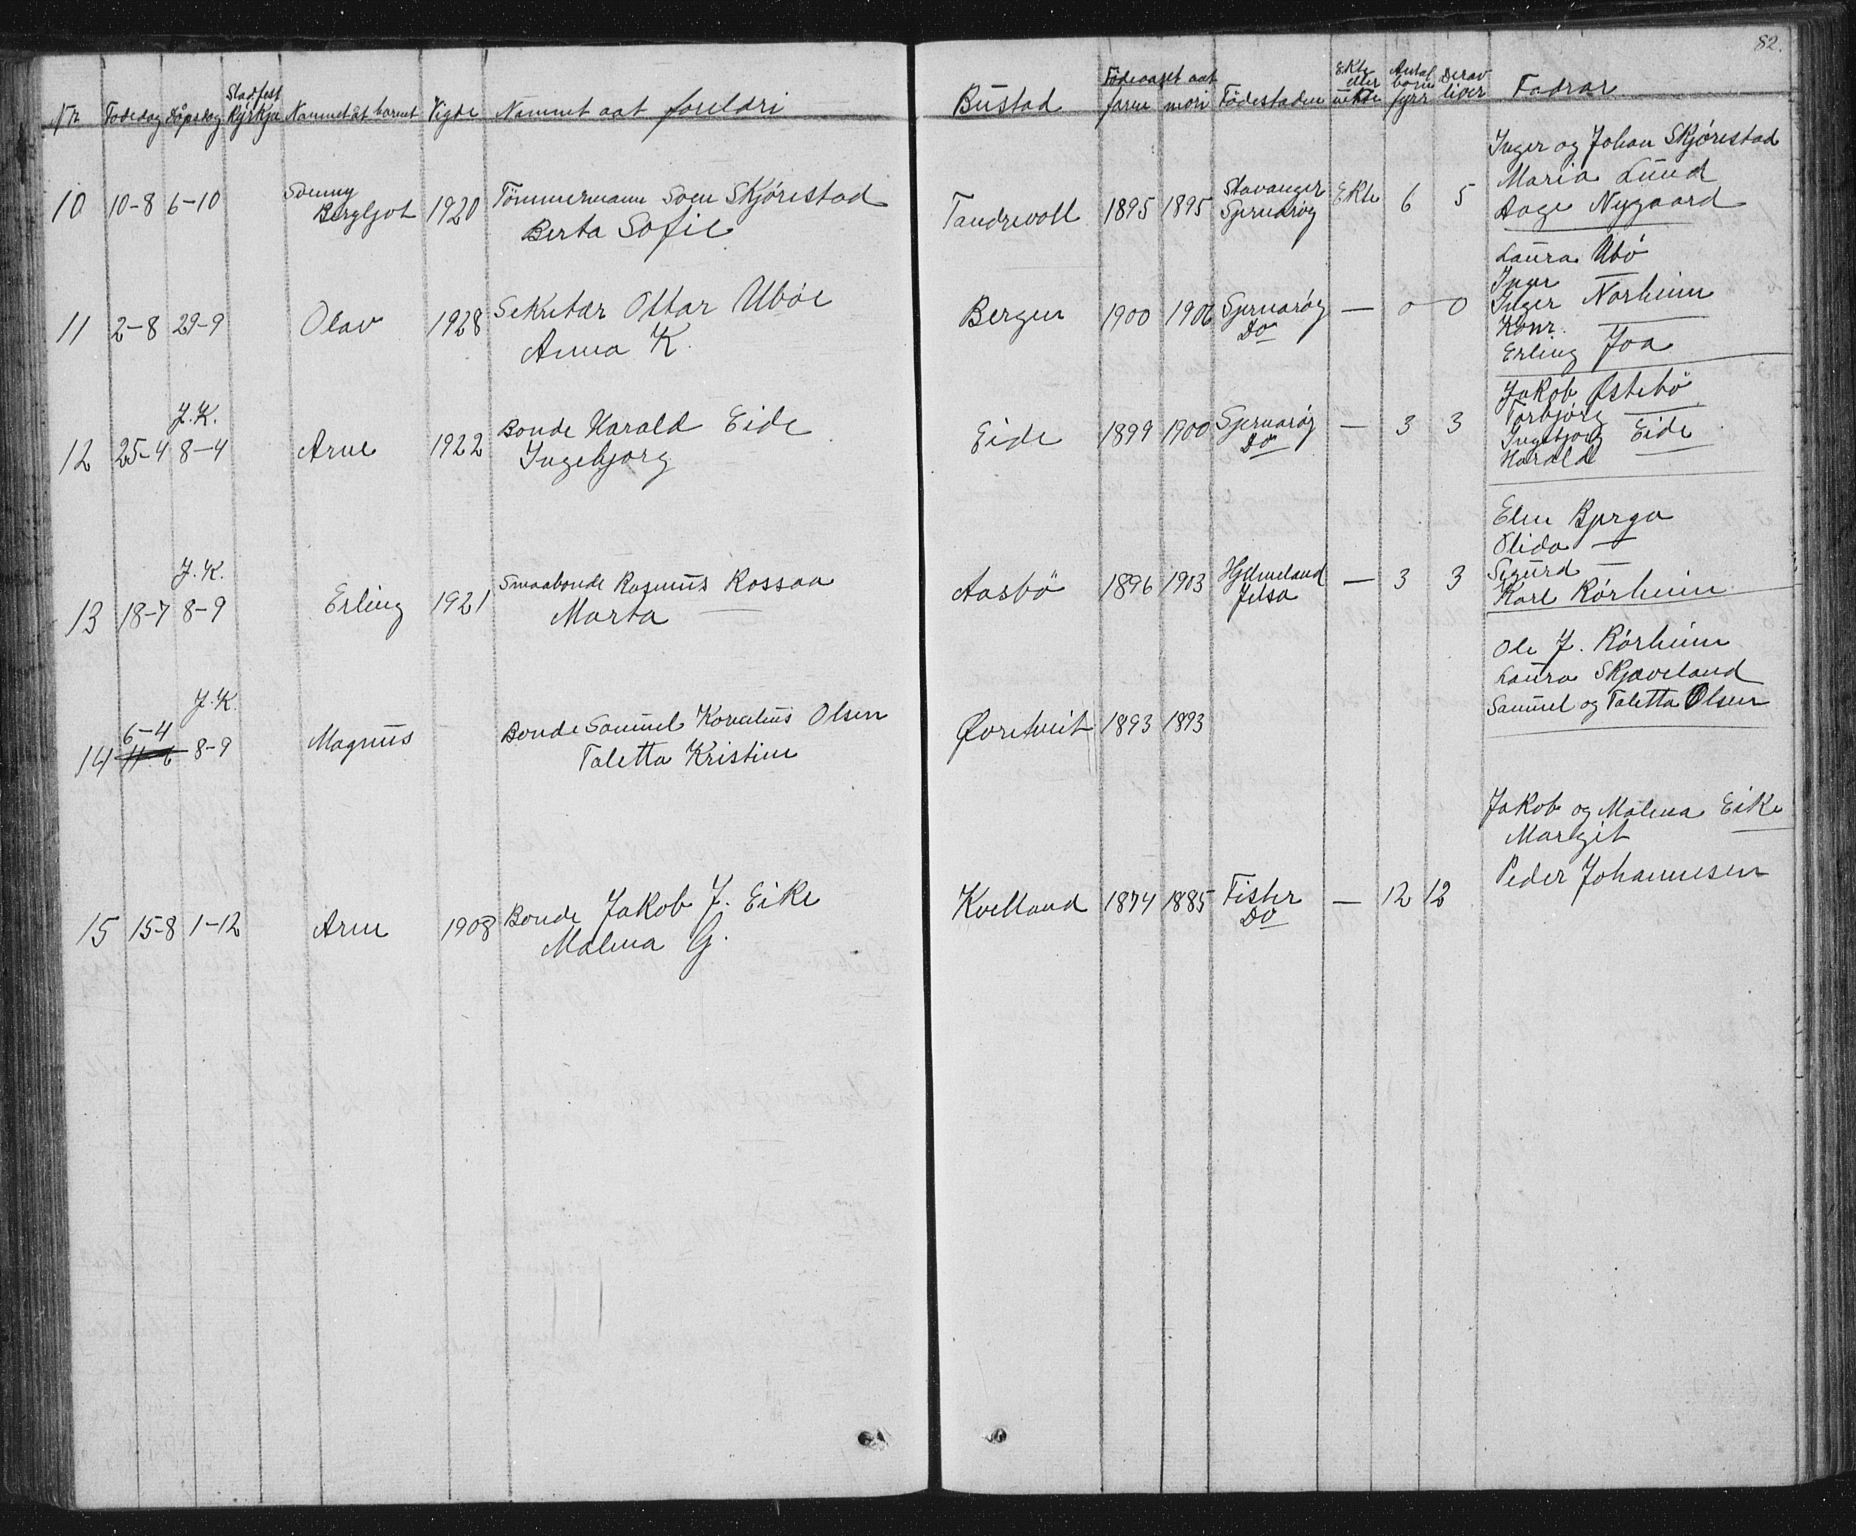 82.
Nr Fødedag Dåpsdag Stadfest Kyrkja Namnet åt barnet Vigde Namnet aat foreldri Bustad Fødeaaret aat faren mori Fødestaden Ekte eller uekte Antal born fyrr Derav liver Fadrar
10 10-8 6-10 Svenny Bergljot 1920 Tömmermann Sven Skjørestad
Berta Sofie
Tandrevoll 1895 1895 Stavanger
Sjernarøy
Ekte 6 5
Inger og Johan Skjørestad
Maria Lund
Aage Nygaard
11 2-8 29-9 Olav 1928 Sekretær Ottar Ubøe
Anna K.
Bergen 1900 1906 Sjernarøy
Do
— 0 0
Laura Ubö
Inger —
Inger Norheim
Konr. —
Erling Joa
J.K.
12 25-4 8-4 Arne 1922 Bonde Harald Eide
Ingebjorg
Eide 1899 1900 Sjernarøy
Do
— 3 3
Jakob Østebö
Torbjörg —
Ingebjorg Eide
Harald —
J.K.
13 18-7 8-9 Erling 1921 Smaabonde Rasmus Rossaa
Marta —
Aasbö 1896 1903 Hjelmeland
Jelsa
— 3 3
Elen Bjerga
Olida —
Sigurd —
Karl Rörheim
J.K.
6-4
14 11-6 8-9 Magnus Bonde Samuel Kornelius Olsen
Taletta Kristine
Øvretveit 1893 1893
Ole J. Rörheim
Laura Skjaveland
Samuel og Taletta Olsen
15 15-8 1-12 Arne 1908 Bonde Jakob J. Eike
Malena G.
Kvelland 1874 1885 Fister
Do
— 12 12
Jakob og Malena Eike
Margit —
Peder Johannesen